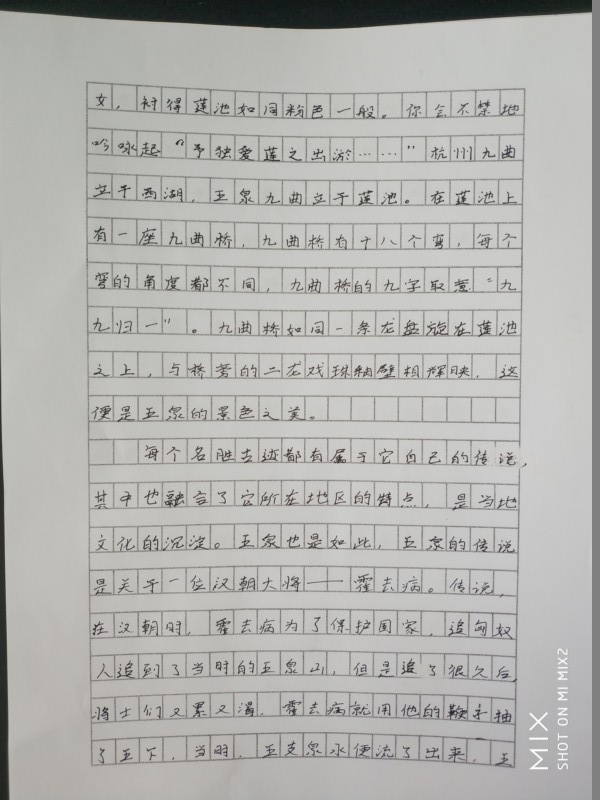 女，衬得莲池如同粉色一般。你会不禁地
吟咏起“予独爱莲之出淤……”杭州九曲
立于西湖，五泉九曲立于莲池。在莲池上
有一座九曲桥，九曲桥有十八个弯，每个
弯的角度都不同，九曲桥的九字取意“九
九归一”。九曲桥如同一条龙盘旋在莲池
之上，与桥旁的二龙戏珠铜壁相辉映，这
便是五泉的景色之美。
每个名胜古迹都有属于它自己的传说，
其中也融合了它所在地区的特点，是当地
文化的沉淀。五泉也是如此，五泉的传说
是关于一位汉朝大将——霍去病。传说，
在汉朝时，霍去病为了保护国家，追匈奴
人追到了当时的五泉山，但是追了很久后，
将士们又累又渴，霍去病就用他的鞭子抽
了五下，当时，五支泉水便流了出来，五
MIX
SHOT ON MI MIX2